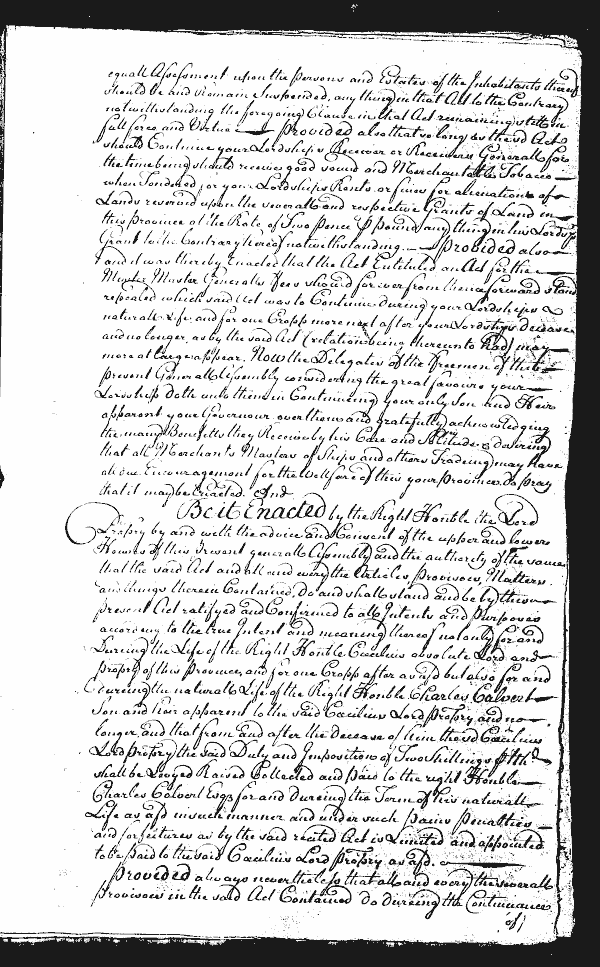 equall Assessment upon the Persons and Estates of the Inhabitants thereof
should be and Remain Suspended, any thing in that Act to the Contrary
notwithstanding the foregoing Clause in that Act remaining still in
full force and Virtue — Provided also that so long as the sd Act
should Continue your Lordships Receiver or Receivers Generall for
the time being should receive good sound and Merchantable Tobacco
when Tendered for your Lordships Rents, or fines for alienations of
Lands reserved upon the severall and respective Grants of Land in
this Province at the Rate of Two Pence ⅌ pound any thing in his Lordsps
Grant to the Contrary hereof notwithstanding. — Provided also
and it was thereby Enacted that the Act Entituled an Act for the
Muster Master Generalls Fees should for ever from thenceforward stand
repealed which said Act was to Continue during your Lordships
naturall Life, and for one Cropp more next after your Lordships decease
and no longer, as by the said Act (relation being thereunto had) may
more at Large appear. Now the Delegates of the freemen of this
present Generall Assembly considering the great favours your
Lordship doth unto them in Continueing your only Son and Heir
apparent your Governour over them and gratefully acknowledging
the many Benefitts they Receive by his Care and desiring
that all Merchants Masters of Ships and others Tradeing may have
all due Encouragement for the Wellfare of this your Province Do pray
that it may be Enacted. And
Be it Enacted by the Right Honble the Lord
Propry by and with the advice and Consent of the upper and lower
Houses of this Present generall Assembly and the authority of the same
that the said Act and all and every the Articles, Provisoes, Matters
and things therein Contained, do and shall stand and be by this
present Act ratifyed and Confirmed to all Intents and Purposes
according to the true Intent and meaning thereof not only for and
During the Life of the Right Honble Cæcilius absolute Lord and
Propry of this Province, and for one Cropp after as afd but also for and
dureing the naturall Life of the Right Honble Charles Calvert
Son and heir apparent to the said Cæcilius Lord Propry and no
longer, and that from and after the decease of him the sd Cæcilius
Lord Propry the said Duty and Imposition of Two Shillings ⅌ hhd
shall be Levyed Raised Collected and paid to the right Honble
Charles Calvert Esqr for and Dureing the Term of his naturall
Life as afd in such manner and under such pains penalties
and forfeitures as by the said recited Act is Limited and appointed
to be paid to the said Cæcilius Lord Propry as afd.
Provided always nevertheless that all and every the severall
Provisoes in the said Act Contained do dureing the Continuance
of)